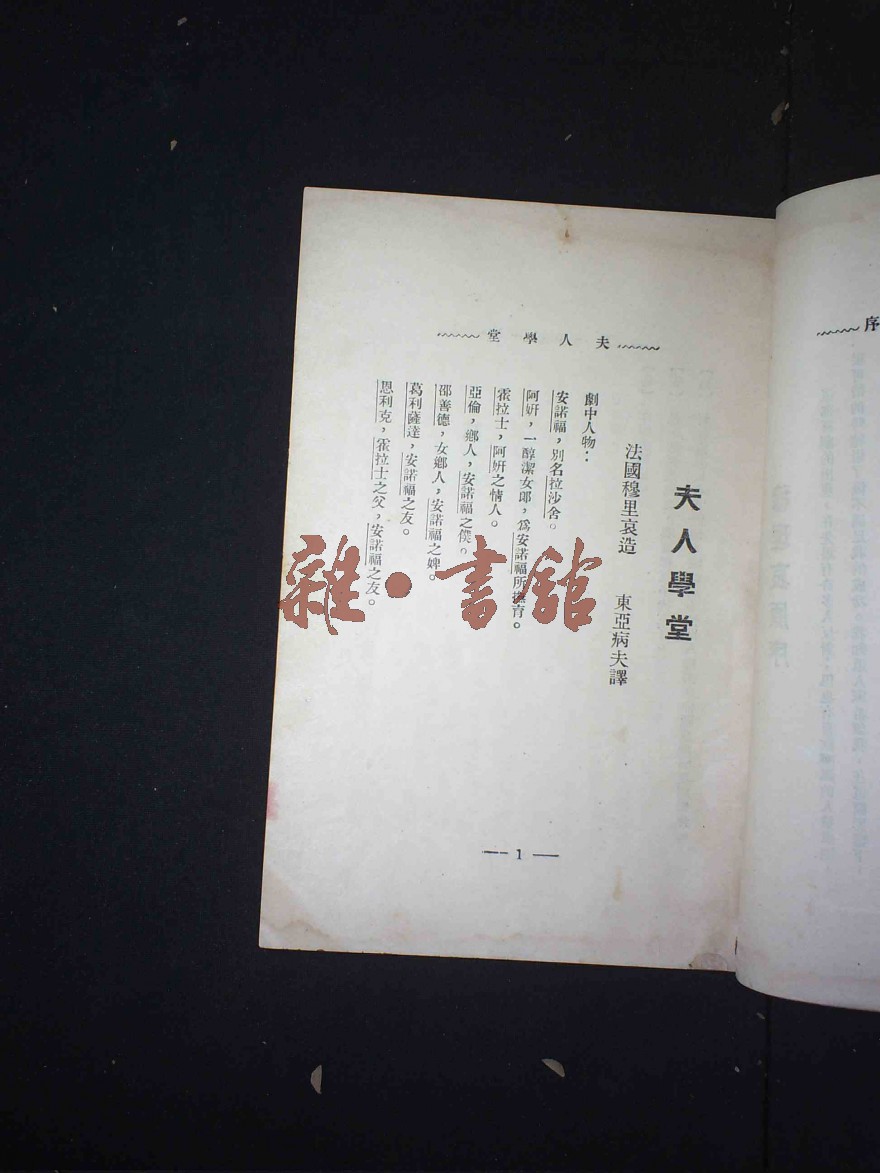 序
夫人學堂
夫人學堂
法國穆里哀造 東亞病夫譯
劇中人物：
安諾福，別名拉沙舍。
阿姸，一醇潔女郎，爲安諾福所撫育。
霍拉士，阿姸之情人。
亞倫，鄉人，安諾福之僕。
邵善德，女鄉人，安諾福之婢。
葛利薩達，安諾福之友。
恩利克，霍拉士之父，安諾福之友。
— 1 —
雜·書館